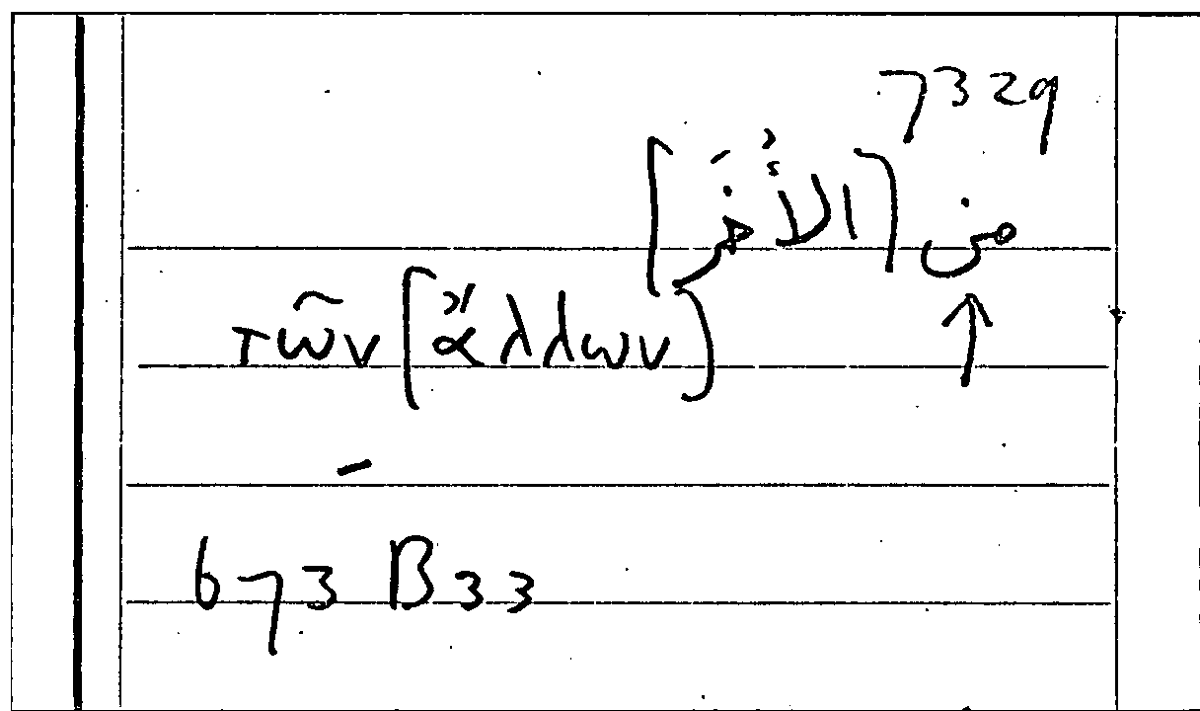 7329
من [الأُخَر]
τῶν [ἄλλων] ↑
673 B33